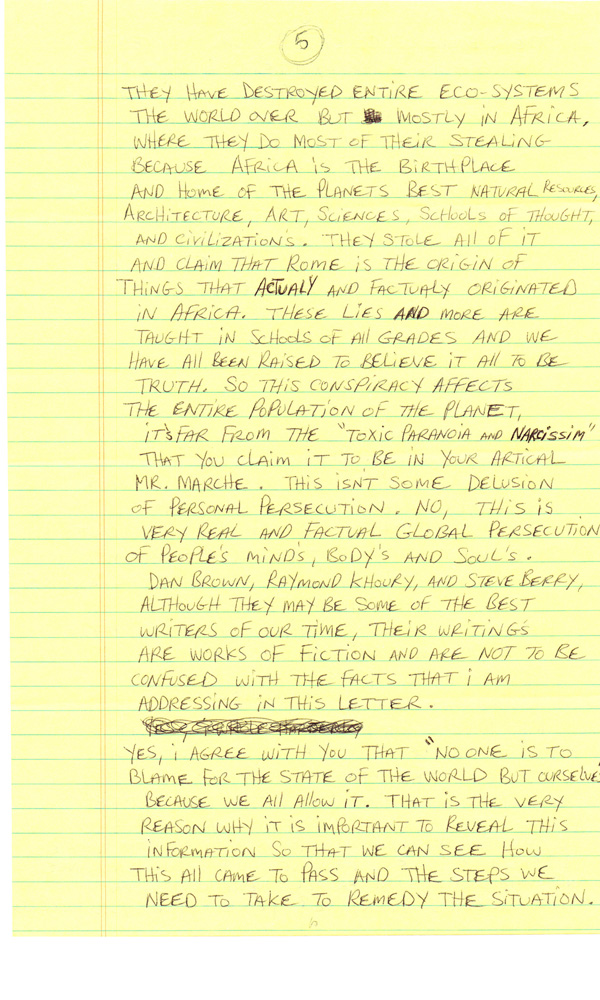 5
THEY HAVE DESTROYED ENTIRE ECO-SYSTEMS
THE WORLD OVER BUT MOSTLY IN AFRICA,
WHERE THEY DO MOST OF THEIR STEALING
BECAUSE AFRICA iS THE BIRTHPLACE
AND HOME OF THE PLANETS BEST NATURAL RESOURCES,
ARCHITECTURE, ART, SCIENCES, SCHOOLS OF THOUGHT,
AND CIVILIZATION'S. THEY STOLE All OF IT
AND CLAIM THAT ROME IS THE ORIGIN OF
THINGS THAT ACTUALY AND FACTUALY ORIGINATED
IN AFRICA. THESE LIES AND MORE ARE
TAUGHT IN SCHOOLS OF All GRADES AND WE
HAVE All BEEN RAISED TO BELIEVE IT All TO BE
TRUTH. SO THIS CONSPIRACY AFFECTS
THE ENTIRE POPULATION OF THE PLANET,
iT'S FAR FROM THE "TOXIC PARANOIA AND NARCISSIM"
THAT YOU CLAIM IT TO BE IN YOUR ARTICAL
MR. MARCHE. THIS ISNT SOME DELUSION
OF PERSONAL PERSECUTION. NO, THIS IS
VERY REAL AND FACTUAL GLOBAL PERSECUTION
OF PEOPLE'S MIND'S, BODY'S AND SOUL'S.
DAN BROWN, RAYMOND KHOURY, AND STEVE BERRY,
ALTHOUGH THEY MAY BE SOME OF THE BEST
WRITERS OF OUR TIME, THEIR WRITINGS
ARE WORKS OF FICTION AND ARE NOT TO BE
CONFUSED WITH THE FACTS THAT i AM
ADDRESSING IN THIS LETTER.
YES, i AGREE WITH YOU THAT "NO ONE IS TO
BLAME FOR THE STATE OF THE WORLD BUT OURSELVES
BECAUSE WE All Allow iT. THAT IS THE VERY
REASON WHY IT IS IMPORTANT TO REVEAL THIS
INFORMATION SO THAT WE CAN SEE HOW
THIS All CAME TO PASS AND THE STEPS WE
NEED TO TAKE TO REMEDY THE SITUATION.